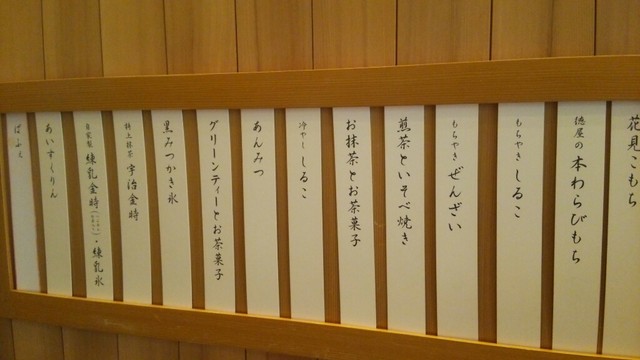 花見こもち
徳屋の本わらびもち
もちやき しるこ
もちやき ぜんざい
煎茶といそべ焼き
お抹茶とお茶菓子
冷やし しるこ
あんみつ
グリーンティーとお茶菓子
黒みつかき氷
特上抹茶 宇治金時
自家製 練乳金時・練乳氷
あいすくりん